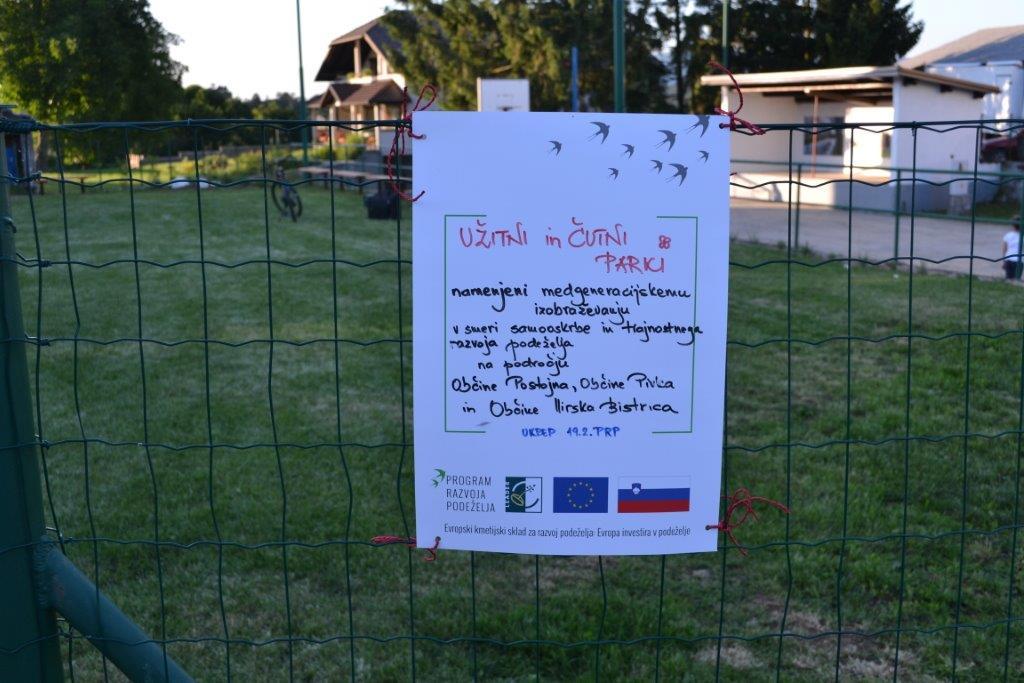 UŽITNI in ČUTNI
PARKI
namenjeni medgeneracijskemu
izobraževanju
v smeri samooskrbe in trajnostnega
razvoja podeželja
na področju
Občine Postojna, Občine Pivka
in Občine Ilirska Bistrica
UKBEP 19.2. PRP
PROGRAM
RAZVOJA
PODEŽELJA
LEADER
Evropski kmetijski sklad za razvoj podeželja: Evropa investira v podeželje